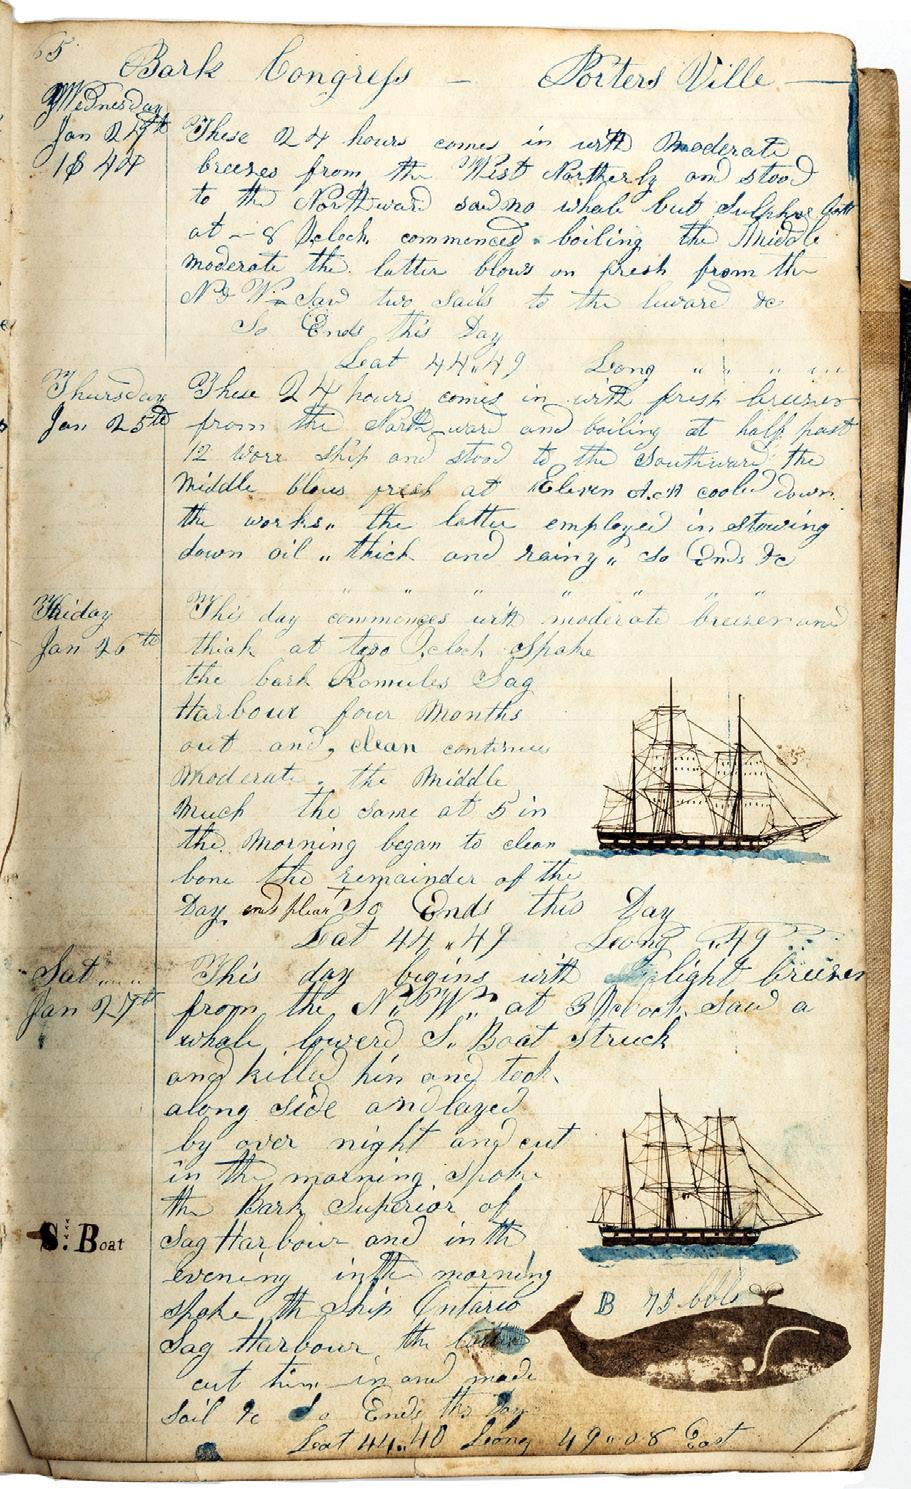 65
Bark Congress — Porters Ville —
Wednesday
Jan 24th
1844
These 24 hours comes in with moderate
breezes from the West Northerly and stood
to the Northward saw no whale but Sulphur
at – 8 Oclock commenced boiling the Middle
moderate the latter blows on fresh from the
N & W Saw two sails to the leward &c
So Ends this Day
Leat 44 " 49 Long " " " "
Thursday
Jan 25th
These 24 hours comes in with fresh breezes
from the North ward and boiling at half past
12 wore ship and stood to the Southward the
Middle blows fresh at Eleven cooled down
the works " the latter employed in stowing
down oil " thick and rainy " So Ends &c
Friday
Jan 26th
This day commences with moderate breezes and
thick at two Oclock Spoke
the bark Romules Sag
Harbour four Months
out and clean continues
Moderate . the Middle
Much the same at 5 in
the Morning began to clean
bone the remainder of the
Day So Ends this Day
Leat 44 " 49 Leong " 49
Sat
Jan 27th
This day begins with light breezes
from the N " W " at 3 Oclock Saw a
whale lowerd S. Boat Struck
and killed him and took
along side and layed
by over night and cut
in the morning spoke
the Bark Superior of
Sag Harbour and in th
evening in th morning
spoke th ship Ontario
Sag Harbour the latter
cut him in and made
Sail &c So Ends ths Day
Leat 44 " 40 Leong 49 " 08 East
S: Boat
B 75 bbls